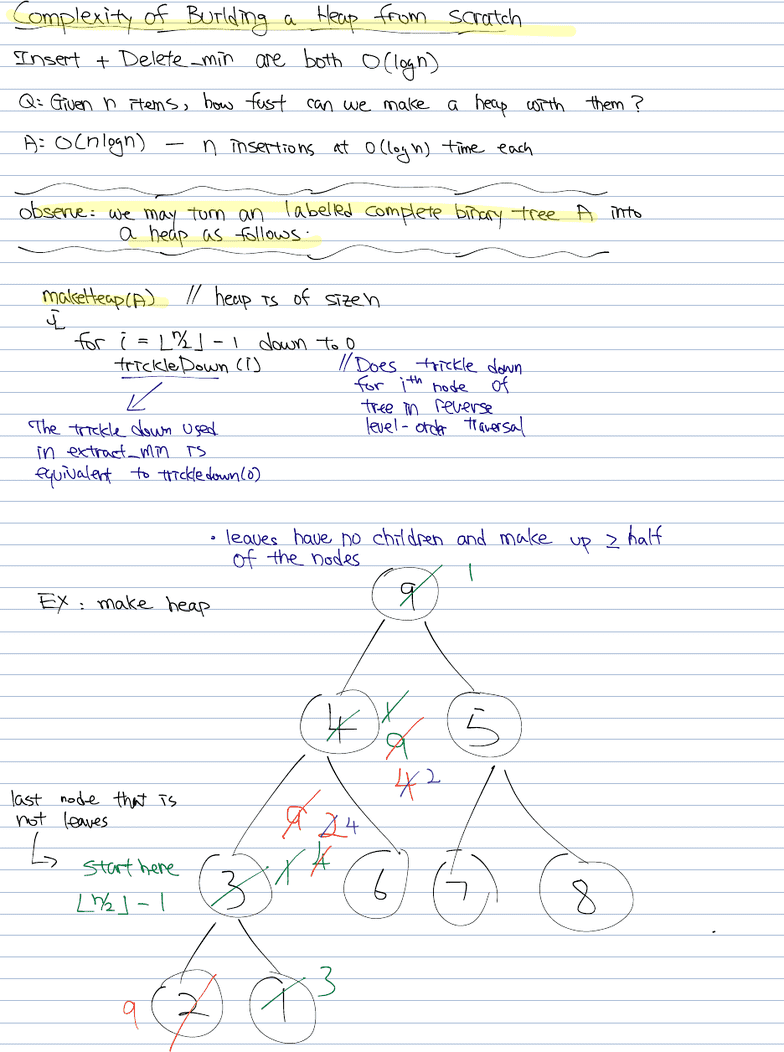 Complexity of Building a Heap from scratch
Insert + Delete_min are both O(logn)
Q: Given n items, how fast can we make a heap with them?
A: O(nlogn) — n insertions at O(logn) time each
observe: we may turn an labelled complete binary tree A into
a heap as follows.
makeHeap(A) // heap is of size n
for i = ⌊n/2⌋ - 1 down to 0
trickleDown(i) // Does trickle down
for ith node of
tree in reverse
level-order traversal
The trickle down used
in extract_min is
equivalent to trickledown(0)
• leaves have no children and make up ≥ half
of the nodes
EX: make heap
9 1
4 1 5
9
4 2
last node that is
not leaves
9 2 4
start here
3 1 4 6 7 8
⌊n/2⌋ - 1
9 2 1 3